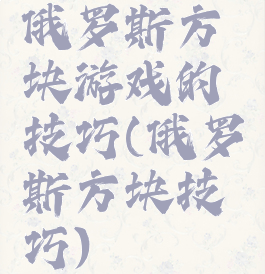 俄罗斯方
块游戏的
技巧(俄罗
斯方块技
巧)